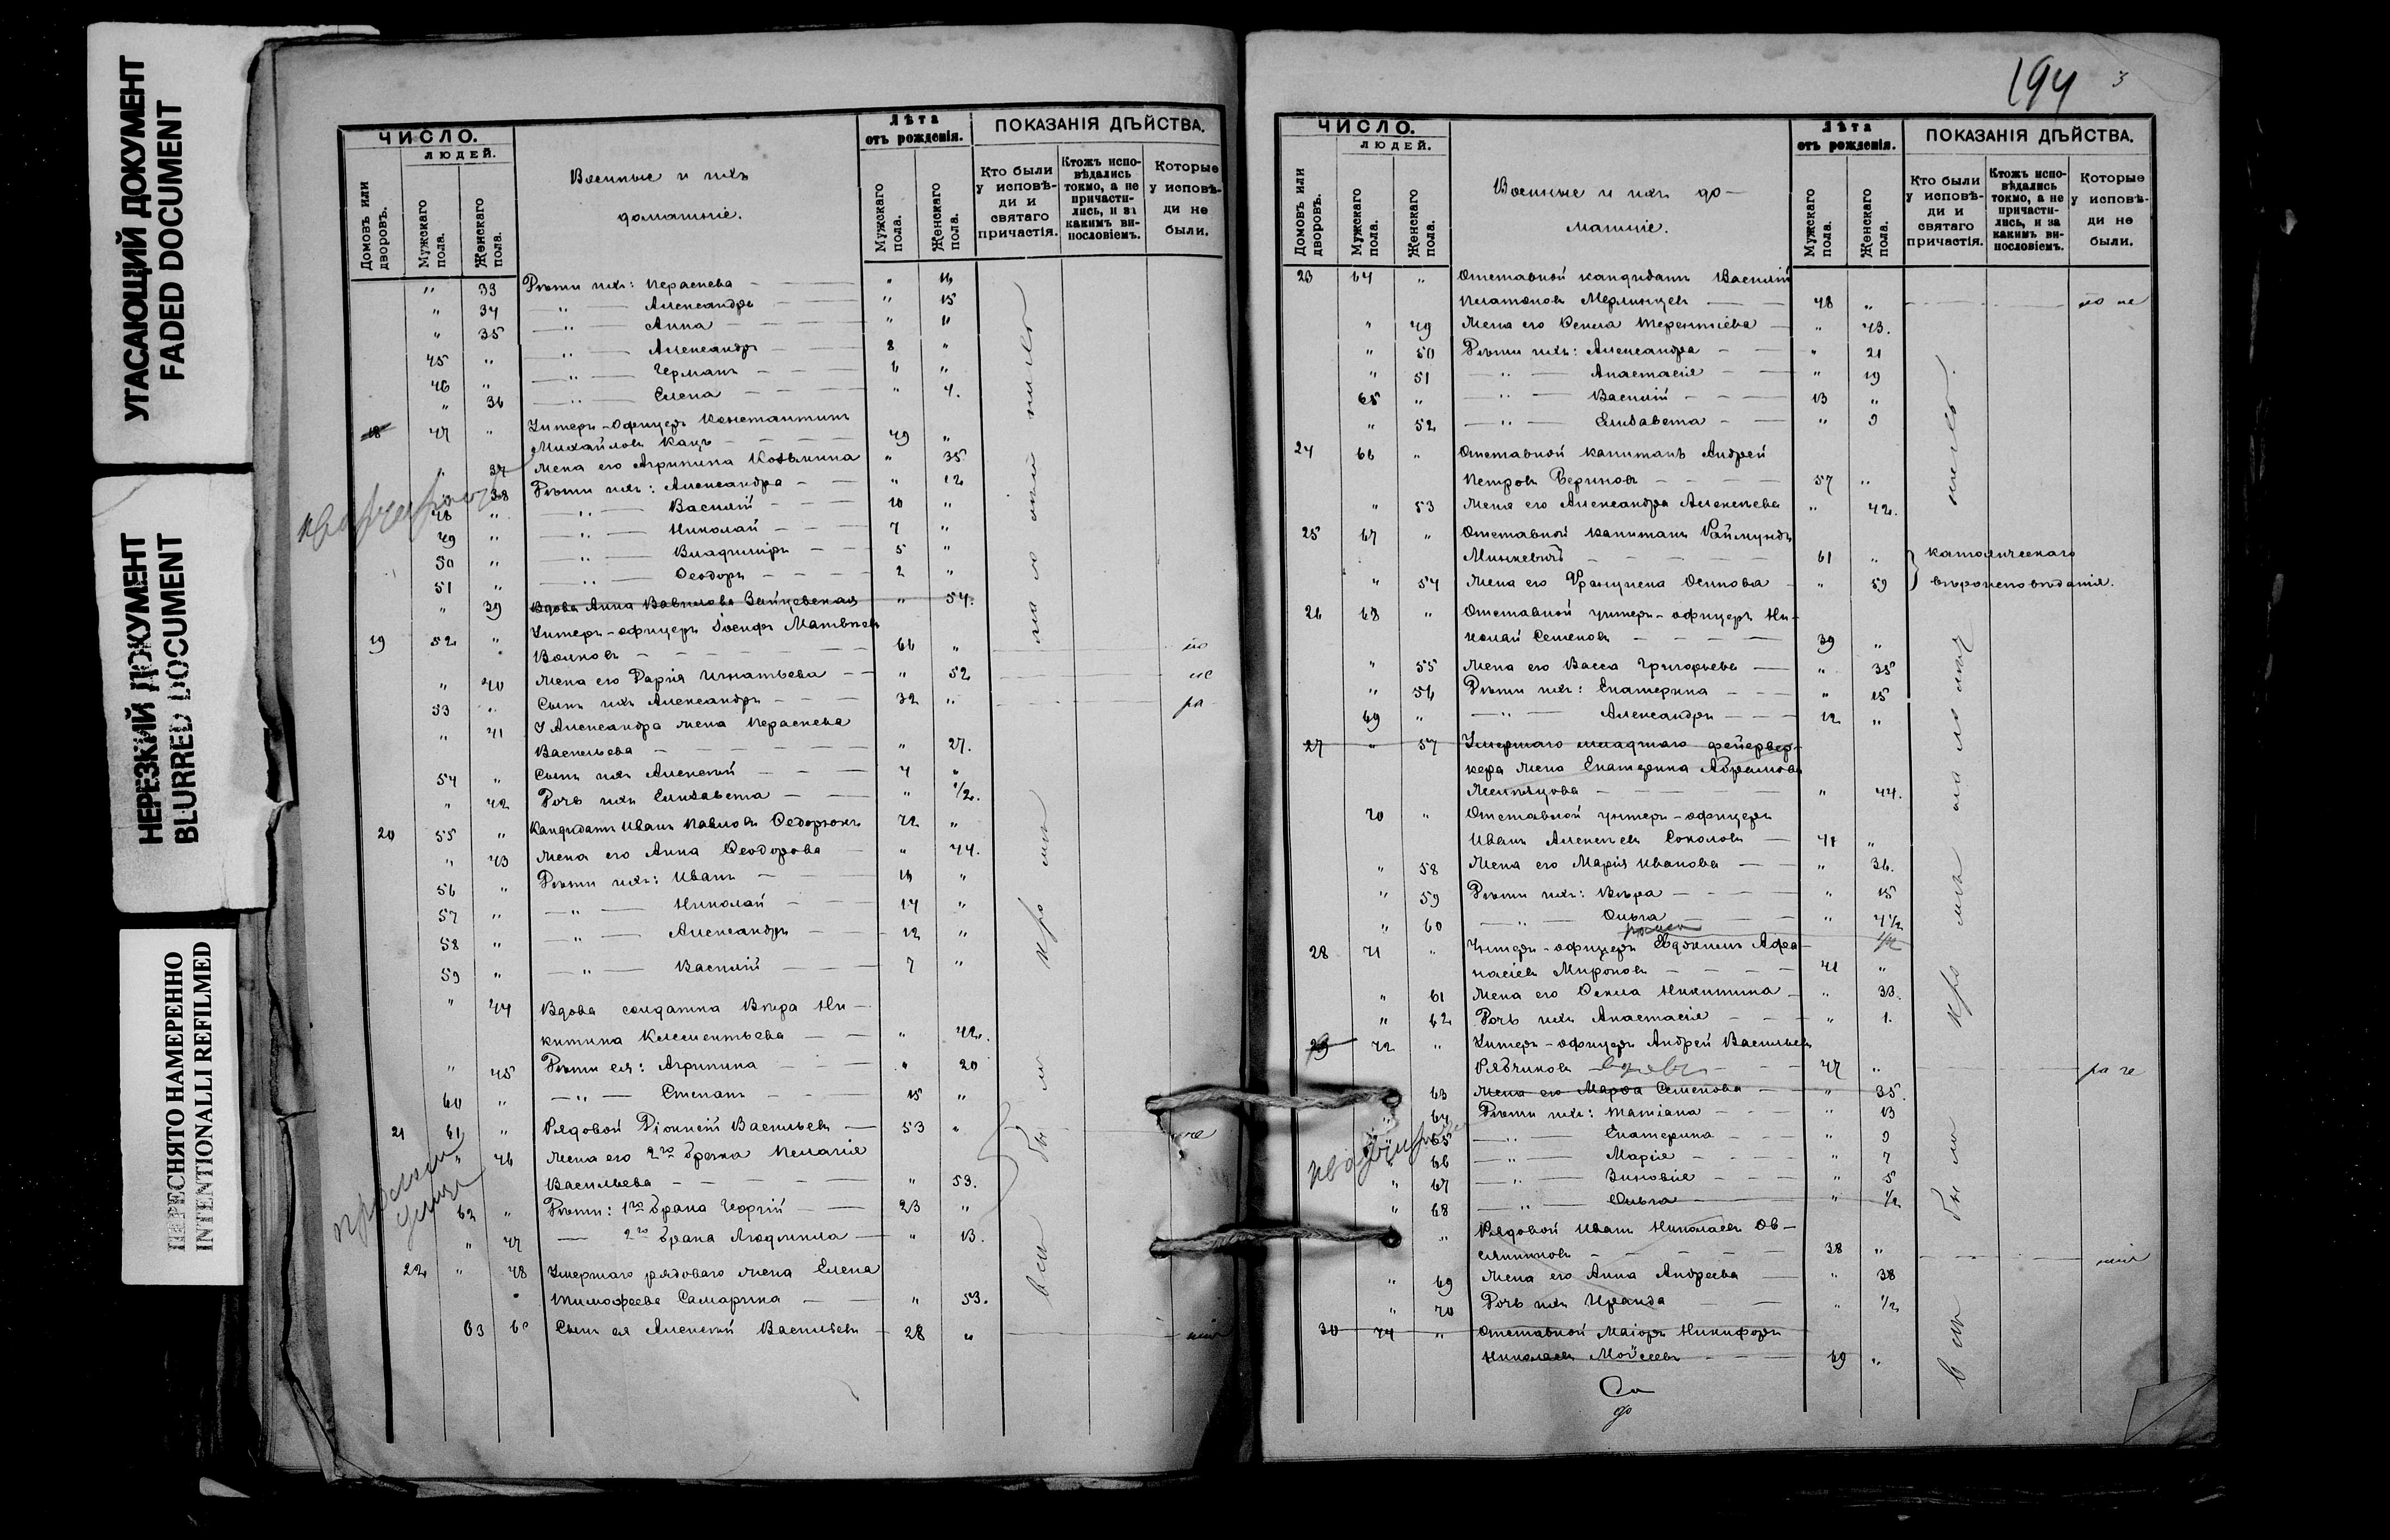 УГАСАЮЩИЙ ДОКУМЕНТ
FADED DOCUMENT
НЕРЕЗКИЙ ДОКУМЕНТ
BLURRED DOCUMENT
ПЕРЕСНЯТО НАМЕРЕННО
INTENTIONALLI REFILMED
ЧИСЛО.
ЛЮДЕЙ.
Домовъ или дворовъ.
Мужскаго пола.
Женскаго пола.
Военные и ихъ
домашніе.
Лѣта
отъ рожденія.
Мужскаго пола.
Женскаго пола.
ПОКАЗАНІЯ ДѢЙСТВА.
Кто были у исповѣди и святаго причастія.
Ктожъ исповѣдались токмо, а не причастились, и за какимъ винословіемъ.
Которые у исповѣди не были.
„ 33 Дѣти ихъ: Параскева „ 16
„ 34 „ Александра „ 15
„ 35 „ Анна „ 11
45 „ „ Александръ 8 „
46 „ „ Германъ 6 „
„ 36 „ Елена „ 4.
18 47 „ Унтеръ-Офицеръ Константинъ
Михайловъ Кацъ 49 „
„ 37 Жена его Агрипина Козьмина „ 35
„ 38 Дѣти ихъ: Александра „ 12
48 „ „ Василій 10 „
49 „ „ Николай 7 „
50 „ „ Владиміръ 5 „
51 „ „ Ѳеодоръ 2 „
„ 39 Вдова Анна Вавилова Зайцевская „ 54.
19 52 „ Унтеръ-офицеръ Іосифъ Матвѣевъ
Волковъ 66 „
„ 40 Жена его Дарія Игнатьева „ 52
53 „ Сынъ ихъ Александръ 32 „
„ 41 У Александра жена Параскева
Васильева „ 27.
54 „ Сынъ ихъ Алексѣй 4 „
„ 42 Дочь ихъ Елизавета „ 1/2.
20 55 „ Кандидатъ Иванъ Павловъ Ѳедорюкъ 42 „
„ 43 Жена его Анна Ѳеодорова „ 44.
56 „ Дѣти ихъ: Иванъ 16 „
57 „ „ Николай 14 „
58 „ „ Александръ 12 „
59 „ „ Василій 7 „
„ 44 Вдова солдатка Вѣра Ни-
китина Клементьева „ 42.
„ 45 Дѣти ея: Агрипина „ 20
60 „ „ Степанъ 15 „
21 61 „ Рядовой Діонисій Васильевъ 53 „
„ 46 Жена его 2го брака Пелагія
Васильева „ 53.
62 „ Дѣти: 1го брака Георгій 23 „
„ 47 2го брака Людмила „ 13.
22 „ 48 Умершаго рядоваго жена Елена
Тимофеева Самарина „ 53.
63 Сынъ ея Алексѣй Васильевъ 28 „
194 3
ЧИСЛО.
ЛЮДЕЙ.
Домовъ или дворовъ.
Мужскаго пола.
Женскаго пола.
Военные и ихъ до-
машніе.
Лѣта
отъ рожденія.
Мужскаго пола.
Женскаго пола.
ПОКАЗАНІЯ ДѢЙСТВА.
Кто были у исповѣди и святаго причастія.
Ктожъ исповѣдались токмо, а не причастились, и за какимъ винословіемъ.
Которые у исповѣди не были.
23 64 „ Отставной кандидатъ Василій
Платоновъ 48 „
„ 49 Жена его Ѳекла Терентіева „ 43.
„ 50 Дѣти ихъ: Александра „ 21
„ 51 „ Анастасія „ 19
65 „ „ Василій 13 „
„ 52 „ Елизавета „ 9
24 66 „ Отставной капитанъ Андрей
Петровъ 57 „
„ 53 Жена его Александра Алексѣева „ 42.
25 67 „ Отставной капитанъ Раймундъ
Минкевичъ 61 „ католическаго
„ 54 Жена его Осипова „ 59 вѣроисповѣданія.
26 68 „ Отставной унтеръ-офицеръ Ни-
колай Семеновъ 39 „
„ 55 Жена его Васса Григорьева „ 35
„ 56 Дѣти ихъ: Екатерина „ 15
69 „ „ Александръ 12 „
27 „ 57 Умершаго младшаго фейервер-
кера жена Екатерина Абрамова
„ 44.
70 „ Отставной унтеръ-офицеръ
Иванъ Алексѣевъ Соколовъ 41 „
„ 58 Жена его Марія Иванова „ 36.
„ 59 Дѣти ихъ: Вѣра „ 15
„ 60 „ Ольга „ 4 1/2
28 71 „ Унтеръ-офицеръ Евдокимъ Афа-
насіевъ Мироновъ 41 „
„ 61 Жена его Ѳекла Никитина „ 33.
„ 62 Дочь ихъ Анастасія „ 1.
29 72 „ Унтеръ-офицеръ Андрей Васильевъ
Рябчиковъ вдовъ 47 „
63 Жена его Марѳа Семенова „ 35.
„ 64 Дѣти ихъ: Татіана „ 13
65 „ Екатерина „ 9
66 „ Марія „ 7
„ 67 „ Зиновія „ 5
„ 68 „ Ольга „ 1/2
„ Рядовой Иванъ Николаевъ Ов-
сянниковъ 38 „
„ 69 Жена его Анна Андреева „ 38
„ 70 Дочь ихъ Ираида „ 1/2
30 74 „ Отставной Маіоръ Никифоръ
Николаевъ Мойсеевъ 69 „